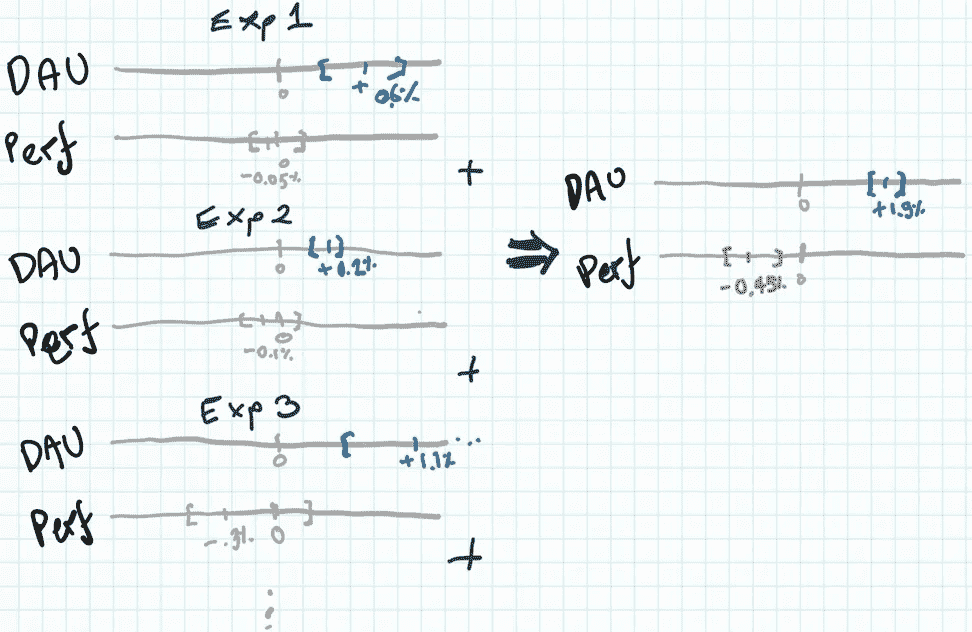 Exp 1
DAU
0
+0.6%
Perf
0
-0.05%
+
Exp 2
DAU
0
+0.2%
Perf
0
-0.1%
+
Exp 3
DAU
0
+1.1%
...
Perf
-.3%
0
+
⇒
DAU
0
+1.9%
Perf
-0.45%
0